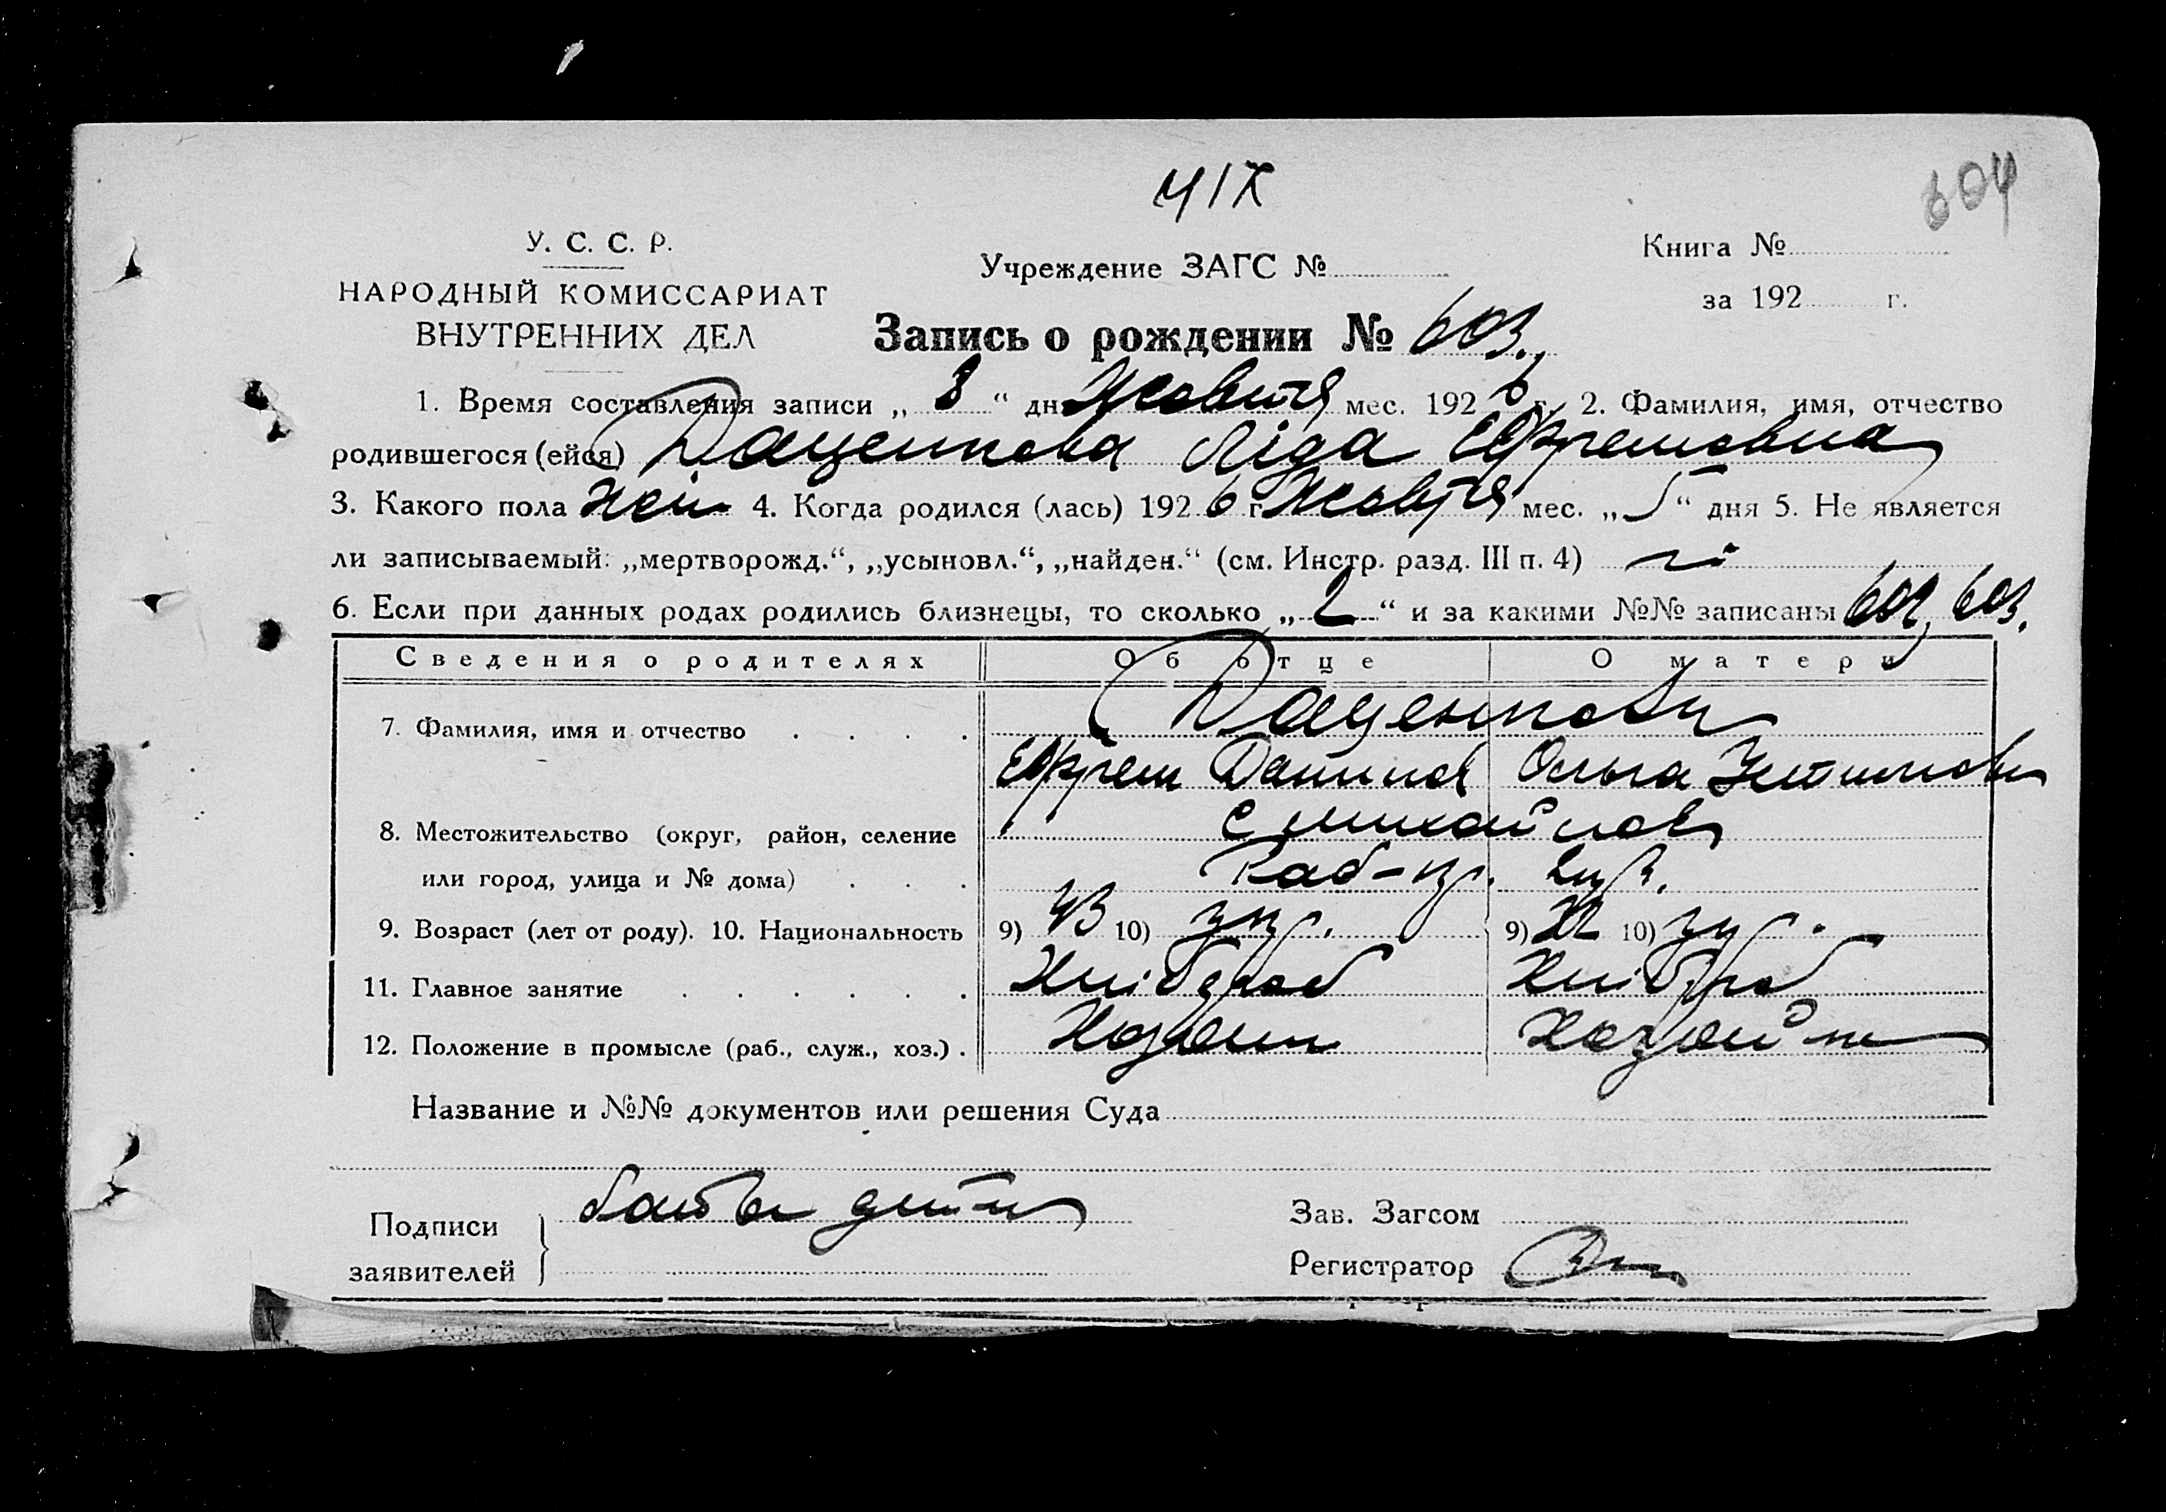 604
У. С. С. Р.
НАРОДНЫЙ КОМИССАРИАТ
ВНУТРЕННИХ ДЕЛ
Учреждение ЗАГС №
Книга №
за 192 г.
Запись о рождении № 603.
1. Время составления записи „ 8 “ дня Жовтня мес. 192 6 г. 2. Фамилия, имя, отчество
родившегося (ейся) Даценкова Ліда Ефремовна
3. Какого пола жін 4. Когда родился (лась) 192 6 г. Жовтня мес. „ 5 “ дня 5. Не является
ли записываемый: „мертворожд.“, „усыновл.“, „найден.“ (см. Инстр. разд. III п. 4) ні
6. Если при данных родах родились близнецы, то сколько „ 2 “ и за какими №№ записаны 602, 603.
Сведения о родителях Об отце О матери
7. Фамилия, имя и отчество Даценкови
Ефрем Данилов Ольга
8. Местожительство (округ, район, селение с Михайловка
или город, улица и № дома)
9. Возраст (лет от роду). 10. Национальность 9) 43 10) укр. 9) 10) укр.
11. Главное занятие Хлібороб Хлібороб
12. Положение в промысле (раб., служ., хоз.) Хозяин Хозяйка
Название и №№ документов или решения Суда
Подписи
заявителей
батько дитини
Зав. Загсом
Регистратор